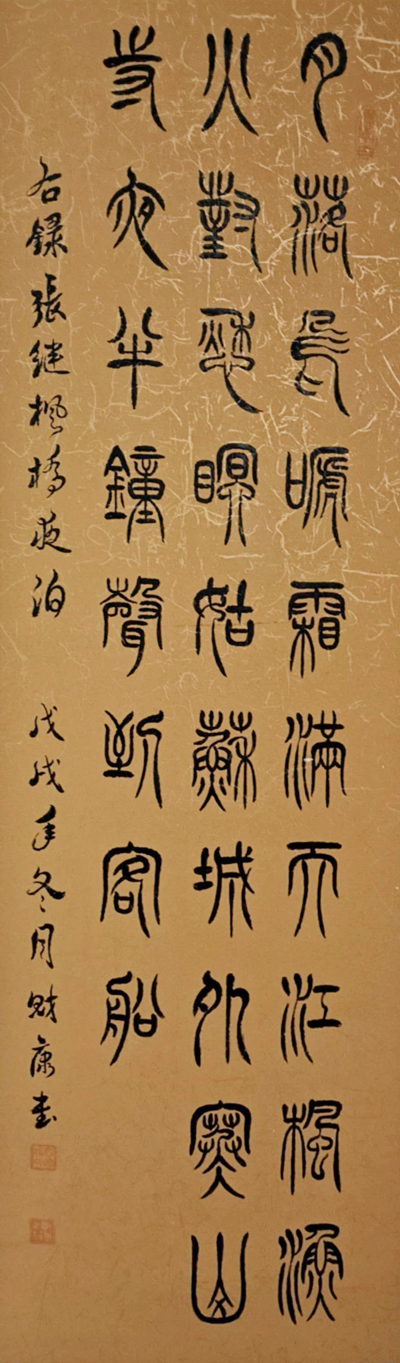 月落烏嗁霜滿天江楓漁
火對愁瞑姑蘇城外寒山
寺夜半鐘聲到客船
右錄張继楓橋夜泊 戊戌年冬月財康書